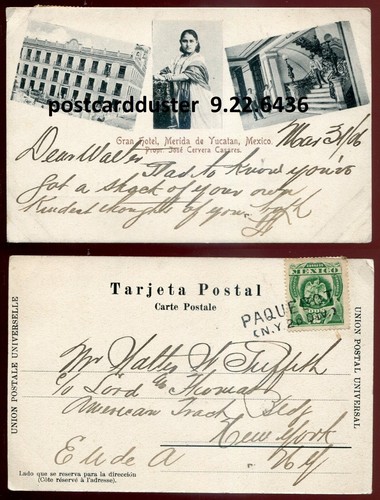 postcardduster 9.22.6436
Gran Hotel, Merida de Yucatan, Mexico.
Propr. José Cervera Casares.
Mar 31/06
Dear Walter
Glad to know you've
got a shack of your own
Kindest thoughts of you.
Tarjeta Postal
Carte Postale
UNION POSTALE UNIVERSELLE
UNION POSTAL UNIVERSAL
MEXICO
PAQUEBOT
(N.Y. 2D DIV.)
Mr Walter W Griffith
c/o Lord & Thomas
American Tract Bldg
New York
E U de A N Y
Lado que se reserva para la dirección
(Côte réservé à l'adresse).